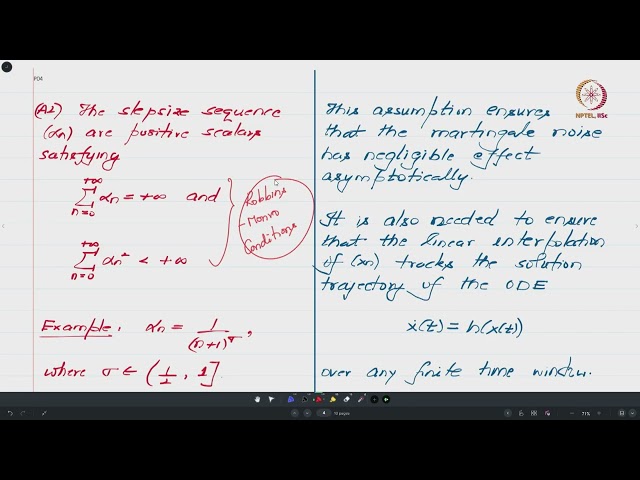 P04
(A2) The stepsize sequence
(αn) are positive scalars
satisfying
+∞
∑ αn = +∞ and
n=0
+∞
∑ αn² < +∞
n=0
Robbins
-Monro
Conditions
Example. αn = 1/(n+1)^σ,
where σ ∈ (1/2, 1]
This assumption ensures
that the martingale noise
has negligible effect
asymptotically.
It is also needed to ensure
that the linear interpolation
of (xn) tracks the solution
trajectory of the ODE
ẋ(t) = h(x(t))
over any finite time window.
NPTEL, IISc
4
10 pages
71%